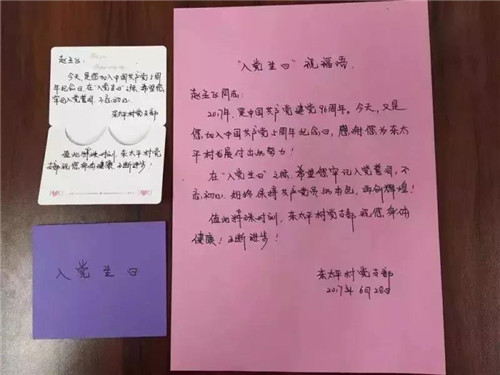 赵孟飞:
今天,是您加入中国共产党5周年
纪念日,在“入党生日”之际,希望您
牢记入党誓词,不忘初心。
东太平村党支部
值此特殊时刻,东太平村党
支部祝您身体健康!不断进步!
入党生日
“入党生日”祝福语
赵孟飞同志:
2017年,是中国共产党建党96周年。今天,又是
您加入中国共产党5周年纪念日,感谢您为东太
平村发展付出的努力!
在“入党生日”之际,希望您牢记入党誓词,不
忘初心,始终保持共产党员的本色,再创辉煌!
值此特殊时刻,东太平村党支部祝您身体
健康!不断进步!
东太平村党支部
2017年6月28日